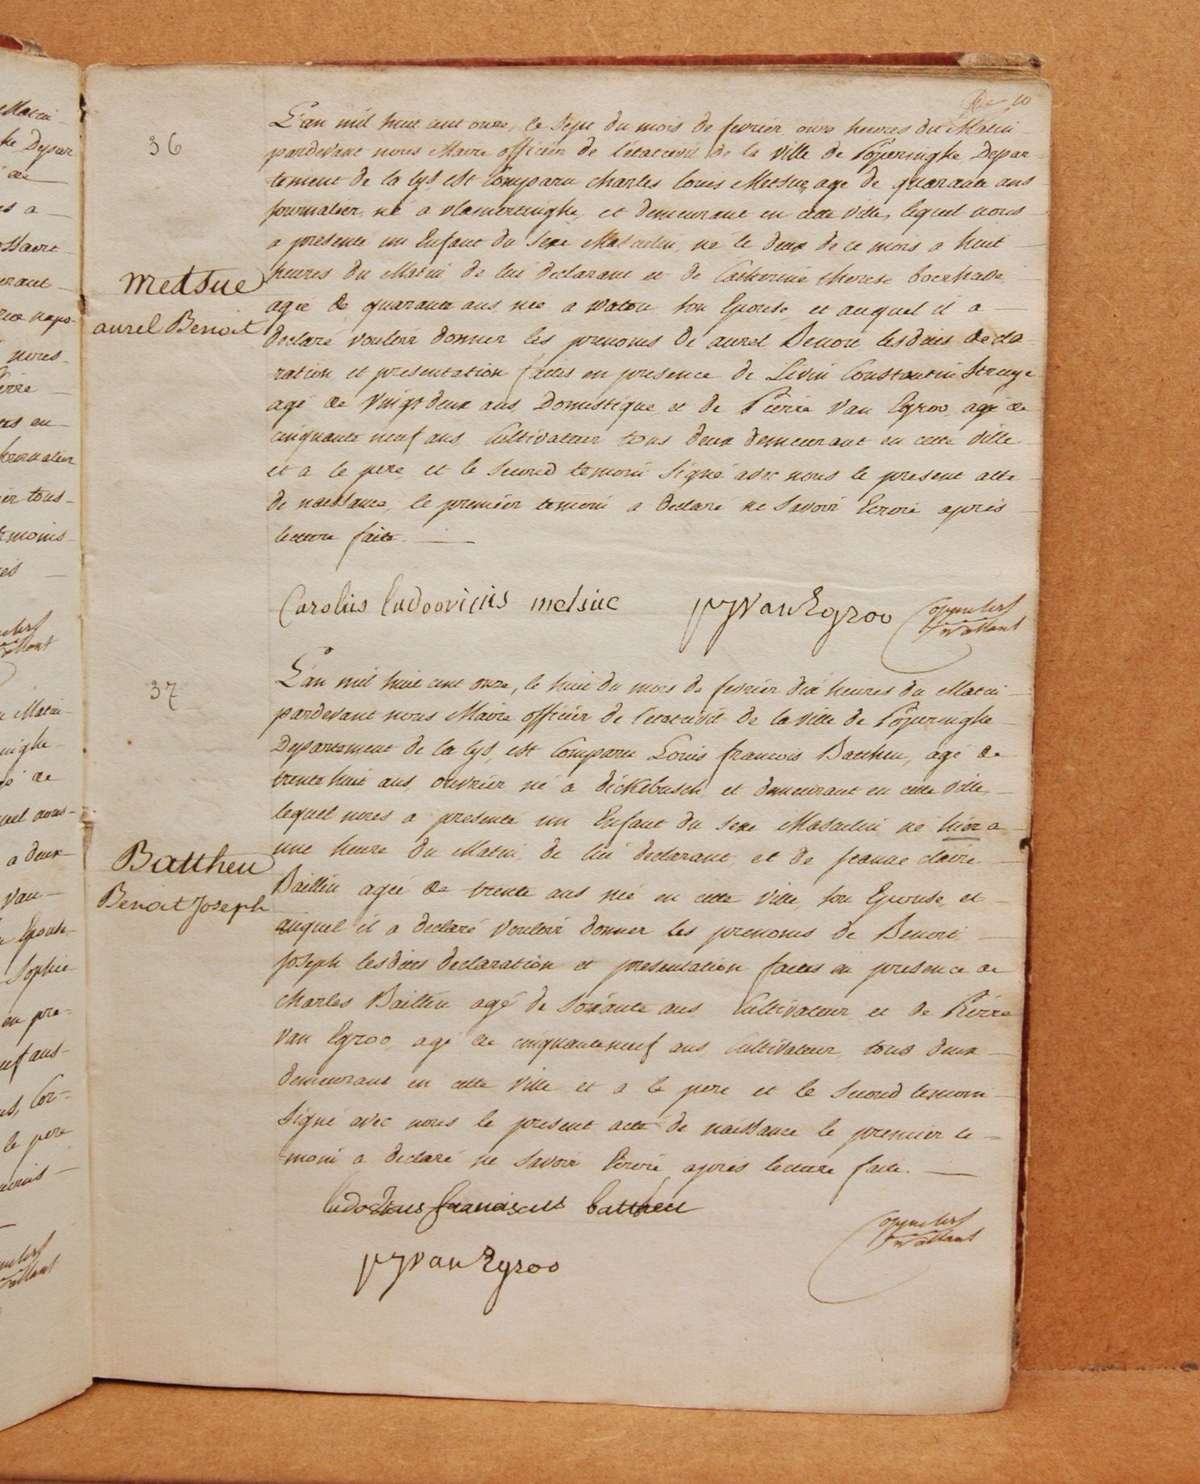 10
36
L'an mil huit cent onze, le sept du mois de fevrier onze heures du Matin
pardevant nous Maire officier de l'etat civil de la ville de Poperinghe Depar-
tement de la Lys est Comparu Charles Louis Metsue, agé de quarante ans
journalier, né a vlamertinghe, et demeurant en cette ville, lequel nous
a presenté un Enfant du sexe Masculin, né le deux de ce mois a huit
heures du Matin de lui declarant et de Catherine therese
agée de quarante ans née a watou son Epouse et auquel il a
declaré vouloir donner les prenoms de aurel Benoit lesdites decla-
ration et presentation faites en presence de Livin Constantin
agé de vingt deux ans, Domestique et de Pierre Van Egroo, agé de
cinquante neuf ans Cultivateur tous deux demeurant en cette ville
et a le pere, et le second temoin Signé avec nous le present acte
de naissance, le premier temoin a declaré ne savoir Ecrire après
lecture faite.
metsue
aurel Benoit
Carolus ludovicus metsue
pj van Egroo
37
L'an mil huit cent onze, le huit du mois de fevrier dix heures du Matin
pardevant nous Maire officier de l'etat civil de la ville de Poperinghe
Departement de la Lys, est Comparu Louis francois Battheu, agé de
trente huit ans ouvrier né a dickebusch, et demeurant en cette ville,
lequel nous a presenté un Enfant du sexe Masculin né hier a
une heure du Matin, de lui declarant, et de jeanne claire
Baillin agée de trente ans née en cette ville, son Epouse, et
auquel il a declaré vouloir donner les prenoms de Benoit
Joseph lesdites declaration et presentation faites en presence de
charles Baillin agé de soixante ans Cultivateur et de Pierre
van Egroo, agé de cinquante neuf ans, cultivateur tous deux
demeurant en cette ville et a le pere et le second temoin
Signé avec nous le present acte de naissance le premier te-
moin a declaré ne savoir Ecrire, après lecture faite.
Battheu
Benoit Joseph
ludovicus franciscus battheu
pj van Egroo